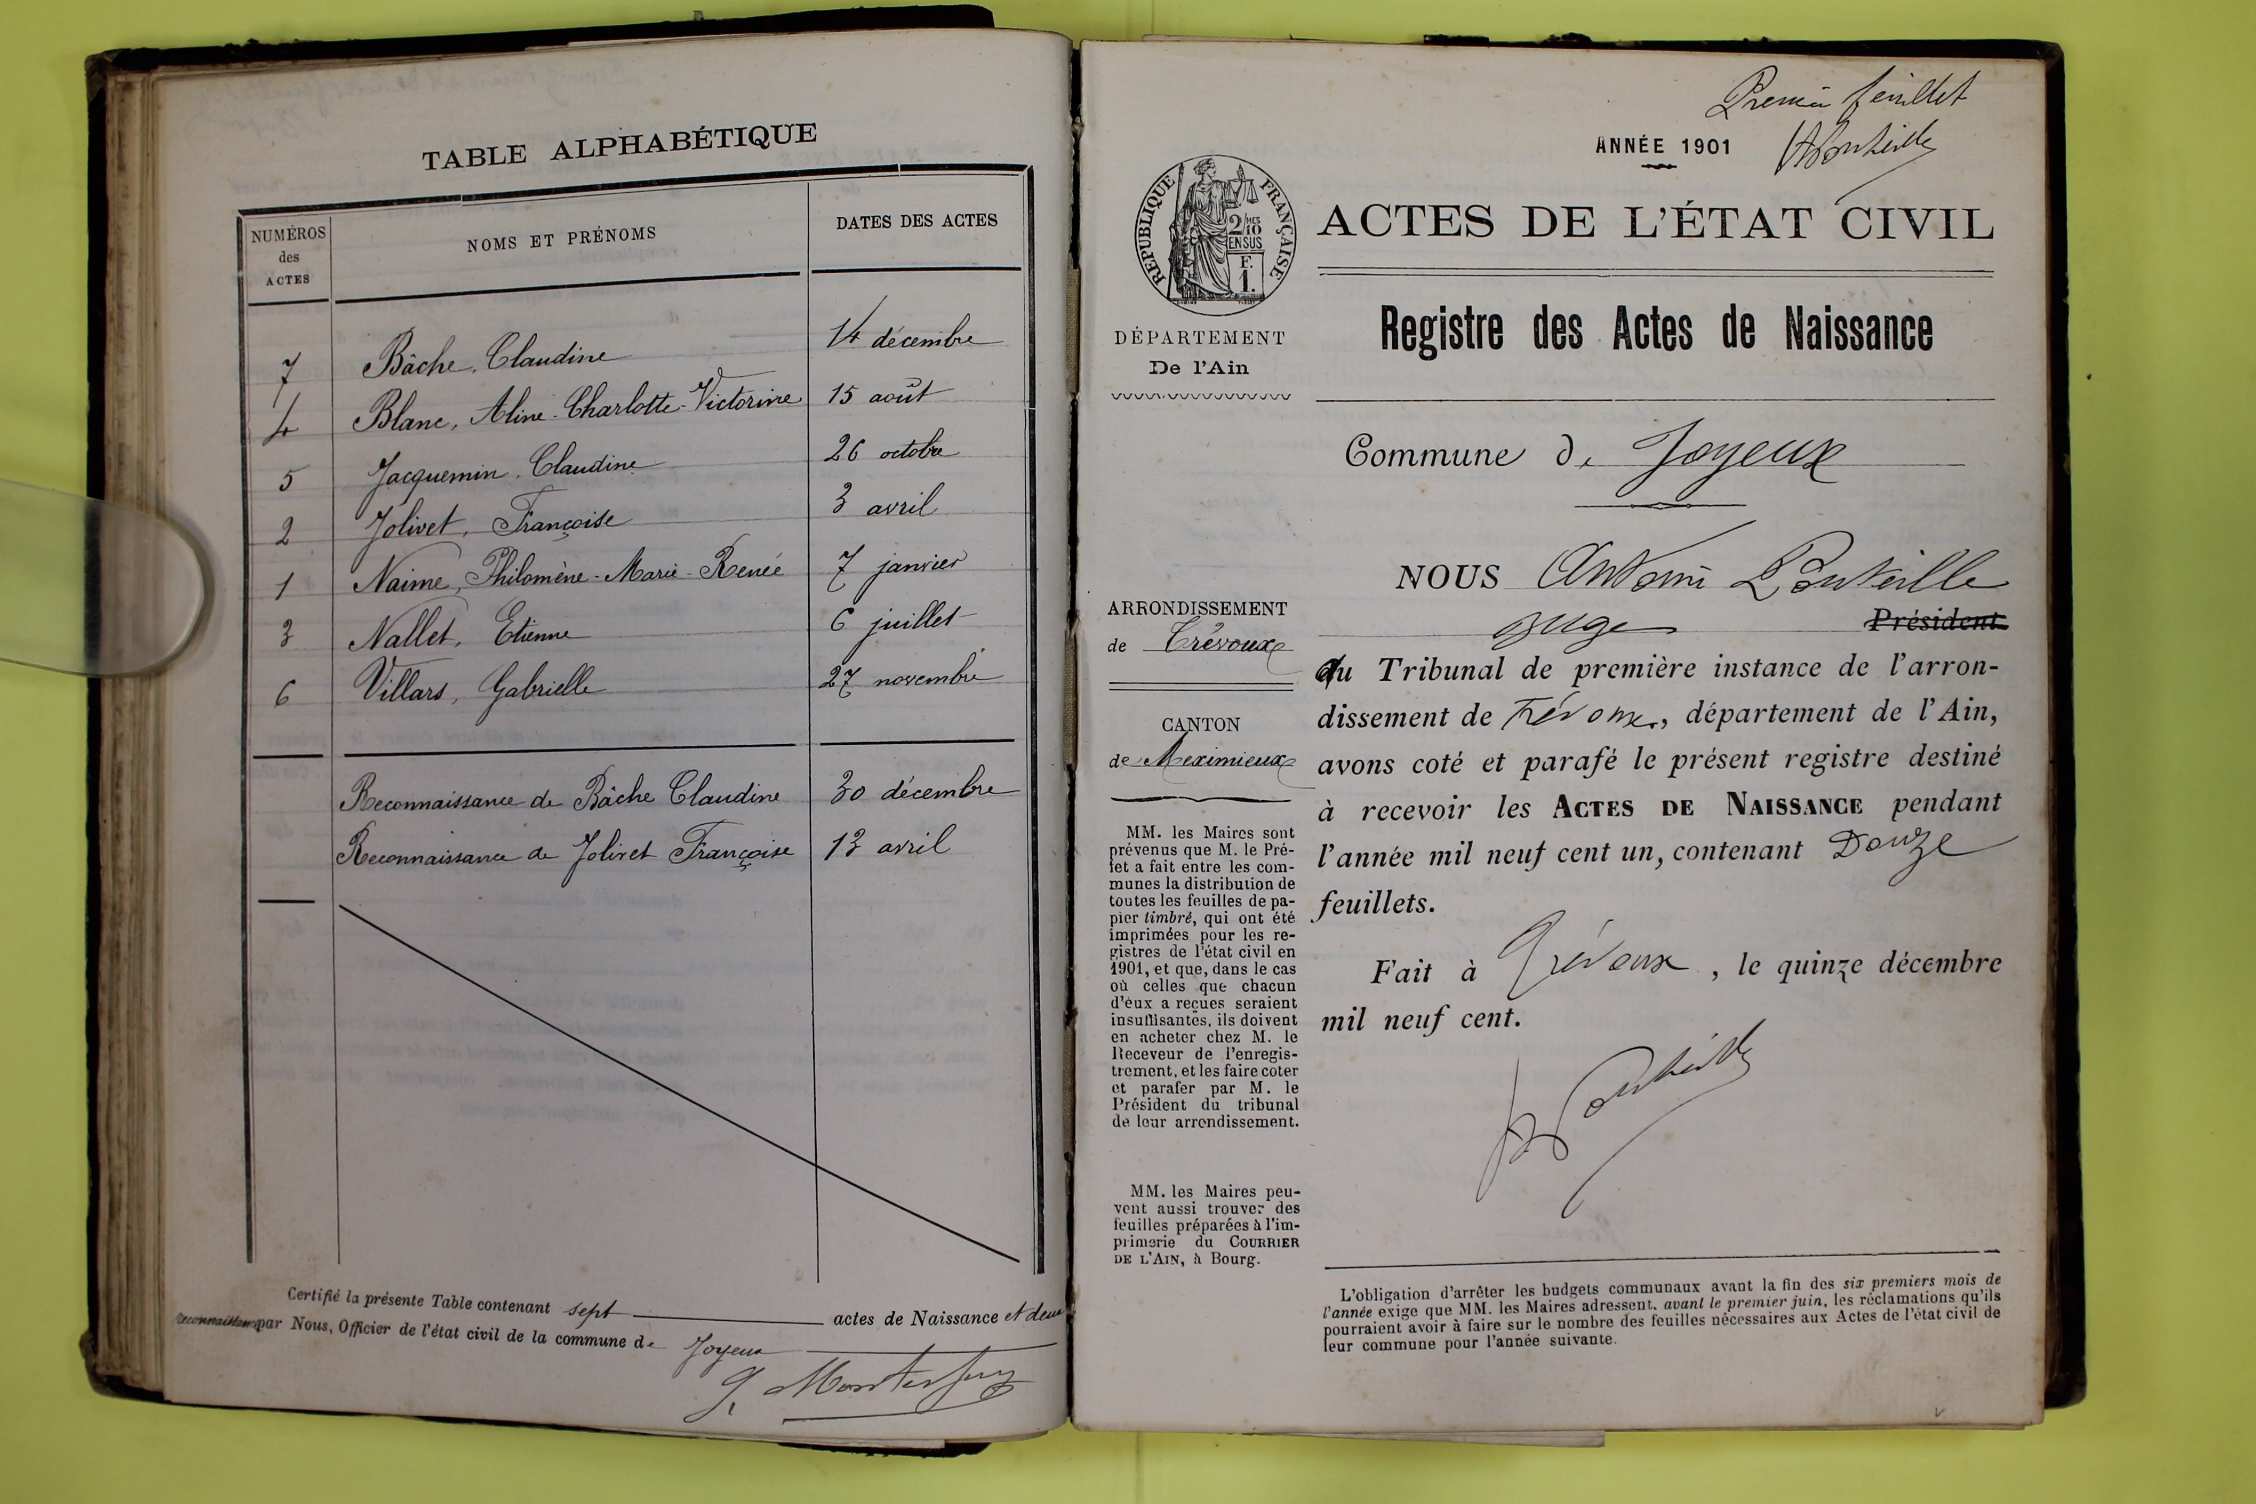 TABLE ALPHABÉTIQUE
NUMÉROS
des
ACTES
NOMS ET PRÉNOMS
DATES DES ACTES
7 Bâche, Claudine 14 décembre
4 Blanc, Aline-Charlotte-Victorine 15 août
5 Jacquemin, Claudine 26 octobre
2 Jolivet, Françoise 3 avril
1 Naime, Philomène-Marie-Renée 7 janvier
3 Nallet, Etienne 6 juillet
6 Villars, Gabrielle 27 novembre
Reconnaissance de Bâche Claudine 30 décembre
Reconnaissance de Jolivet Françoise 13 avril
Certifié la présente Table contenant sept actes de Naissance et deux
reconnaissances par Nous, Officier de l'état civil de la commune de Joyeux
Premier feuillet
ANNÉE 1901
RÉPUBLIQUE FRANÇAISE
2/10 MES
EN SUS
F.
1.
ACTES DE L'ÉTAT CIVIL
Registre des Actes de Naissance
DÉPARTEMENT
De l'Ain
Commune de Joyeux
ARRONDISSEMENT
de Trévoux
CANTON
de Meximieux
MM. les Maires sont
prévenus que M. le Pré-
fet a fait entre les com-
munes la distribution de
toutes les feuilles de pa-
pier timbré, qui ont été
imprimées pour les re-
gistres de l'état civil en
1901, et que, dans le cas
où celles que chacun
d'eux a reçues seraient
insuffisantes, ils doivent
en acheter chez M. le
Receveur de l'enregis-
trement, et les faire coter
et parafer par M. le
Président du tribunal
de leur arrondissement.
MM. les Maires peu-
vent aussi trouver des
feuilles préparées à l'im-
primerie du COURRIER
DE L'AIN, à Bourg.
NOUS Antoine Ponteille
Juge Président
du Tribunal de première instance de l'arron-
dissement de Trévoux, département de l'Ain,
avons coté et parafé le présent registre destiné
à recevoir les ACTES DE NAISSANCE pendant
l'année mil neuf cent un, contenant Douze
feuillets.
Fait à Trévoux, le quinze décembre
mil neuf cent.
L'obligation d'arrêter les budgets communaux avant la fin des six premiers mois de
l'année exige que MM. les Maires adressent, avant le premier juin, les réclamations qu'ils
pourraient avoir à faire sur le nombre des feuilles nécessaires aux Actes de l'état civil de
leur commune pour l'année suivante.